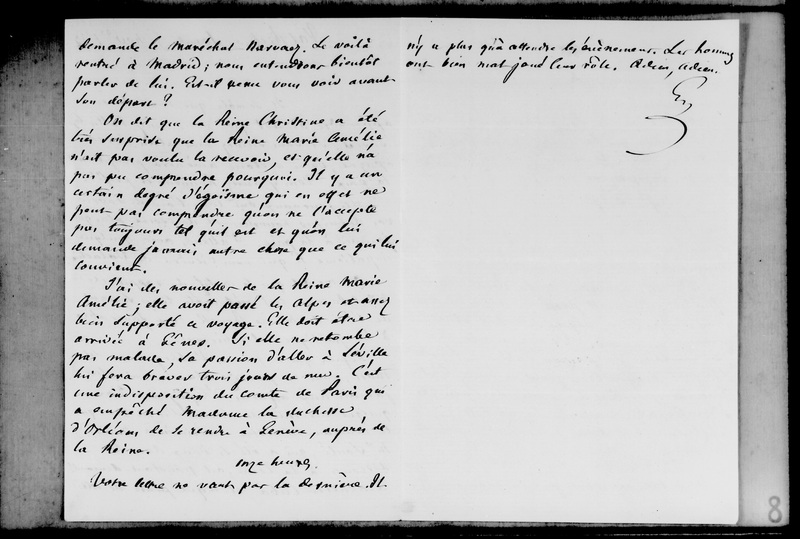 demande le maréchal Narvaez. Le voilà
rentré à Madrid ; nous entendrons bientôt
parler de lui. Est-il venu vous voir avant
son départ ?
On dit que la Reine Christine a été
très surprise que la Reine Marie Amélie
n'ait pas voulu la recevoir, et qu'elle n'a
pas pu comprendre pourquoi. Il y a un
certain degré d'égoïsme qui en effet ne
peut pas comprendre qu'on ne l'accepte
pas toujours tel qu'il est et qu'on lui
demande jamais autre chose que ce qui lui
convient.
J'ai des nouvelles de la Reine Marie
Amélie ; elle avoit passé les Alpes et assez
bien supporté ce voyage. Elle doit être
arrivée à Gênes. Si elle ne retombe
pas malade, sa passion d'aller à Séville
lui fera braver trois jours de mer. C'est
une indisposition du comte de Paris qui
a empêché Madame la duchesse
d'Orléans de se rendre à Genève, auprès de
la Reine.
onze heures.
Votre lettre ne vaut pas la dernière. Il
n'y a plus qu'à attendre les évènemens. Les hommes
ont bien mal joué leur rôle. Adieu, adieu.
G
8